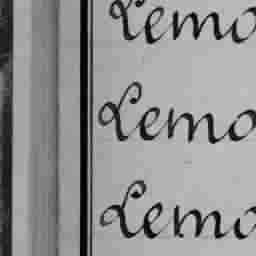 Lemo
Lemo
Lemo